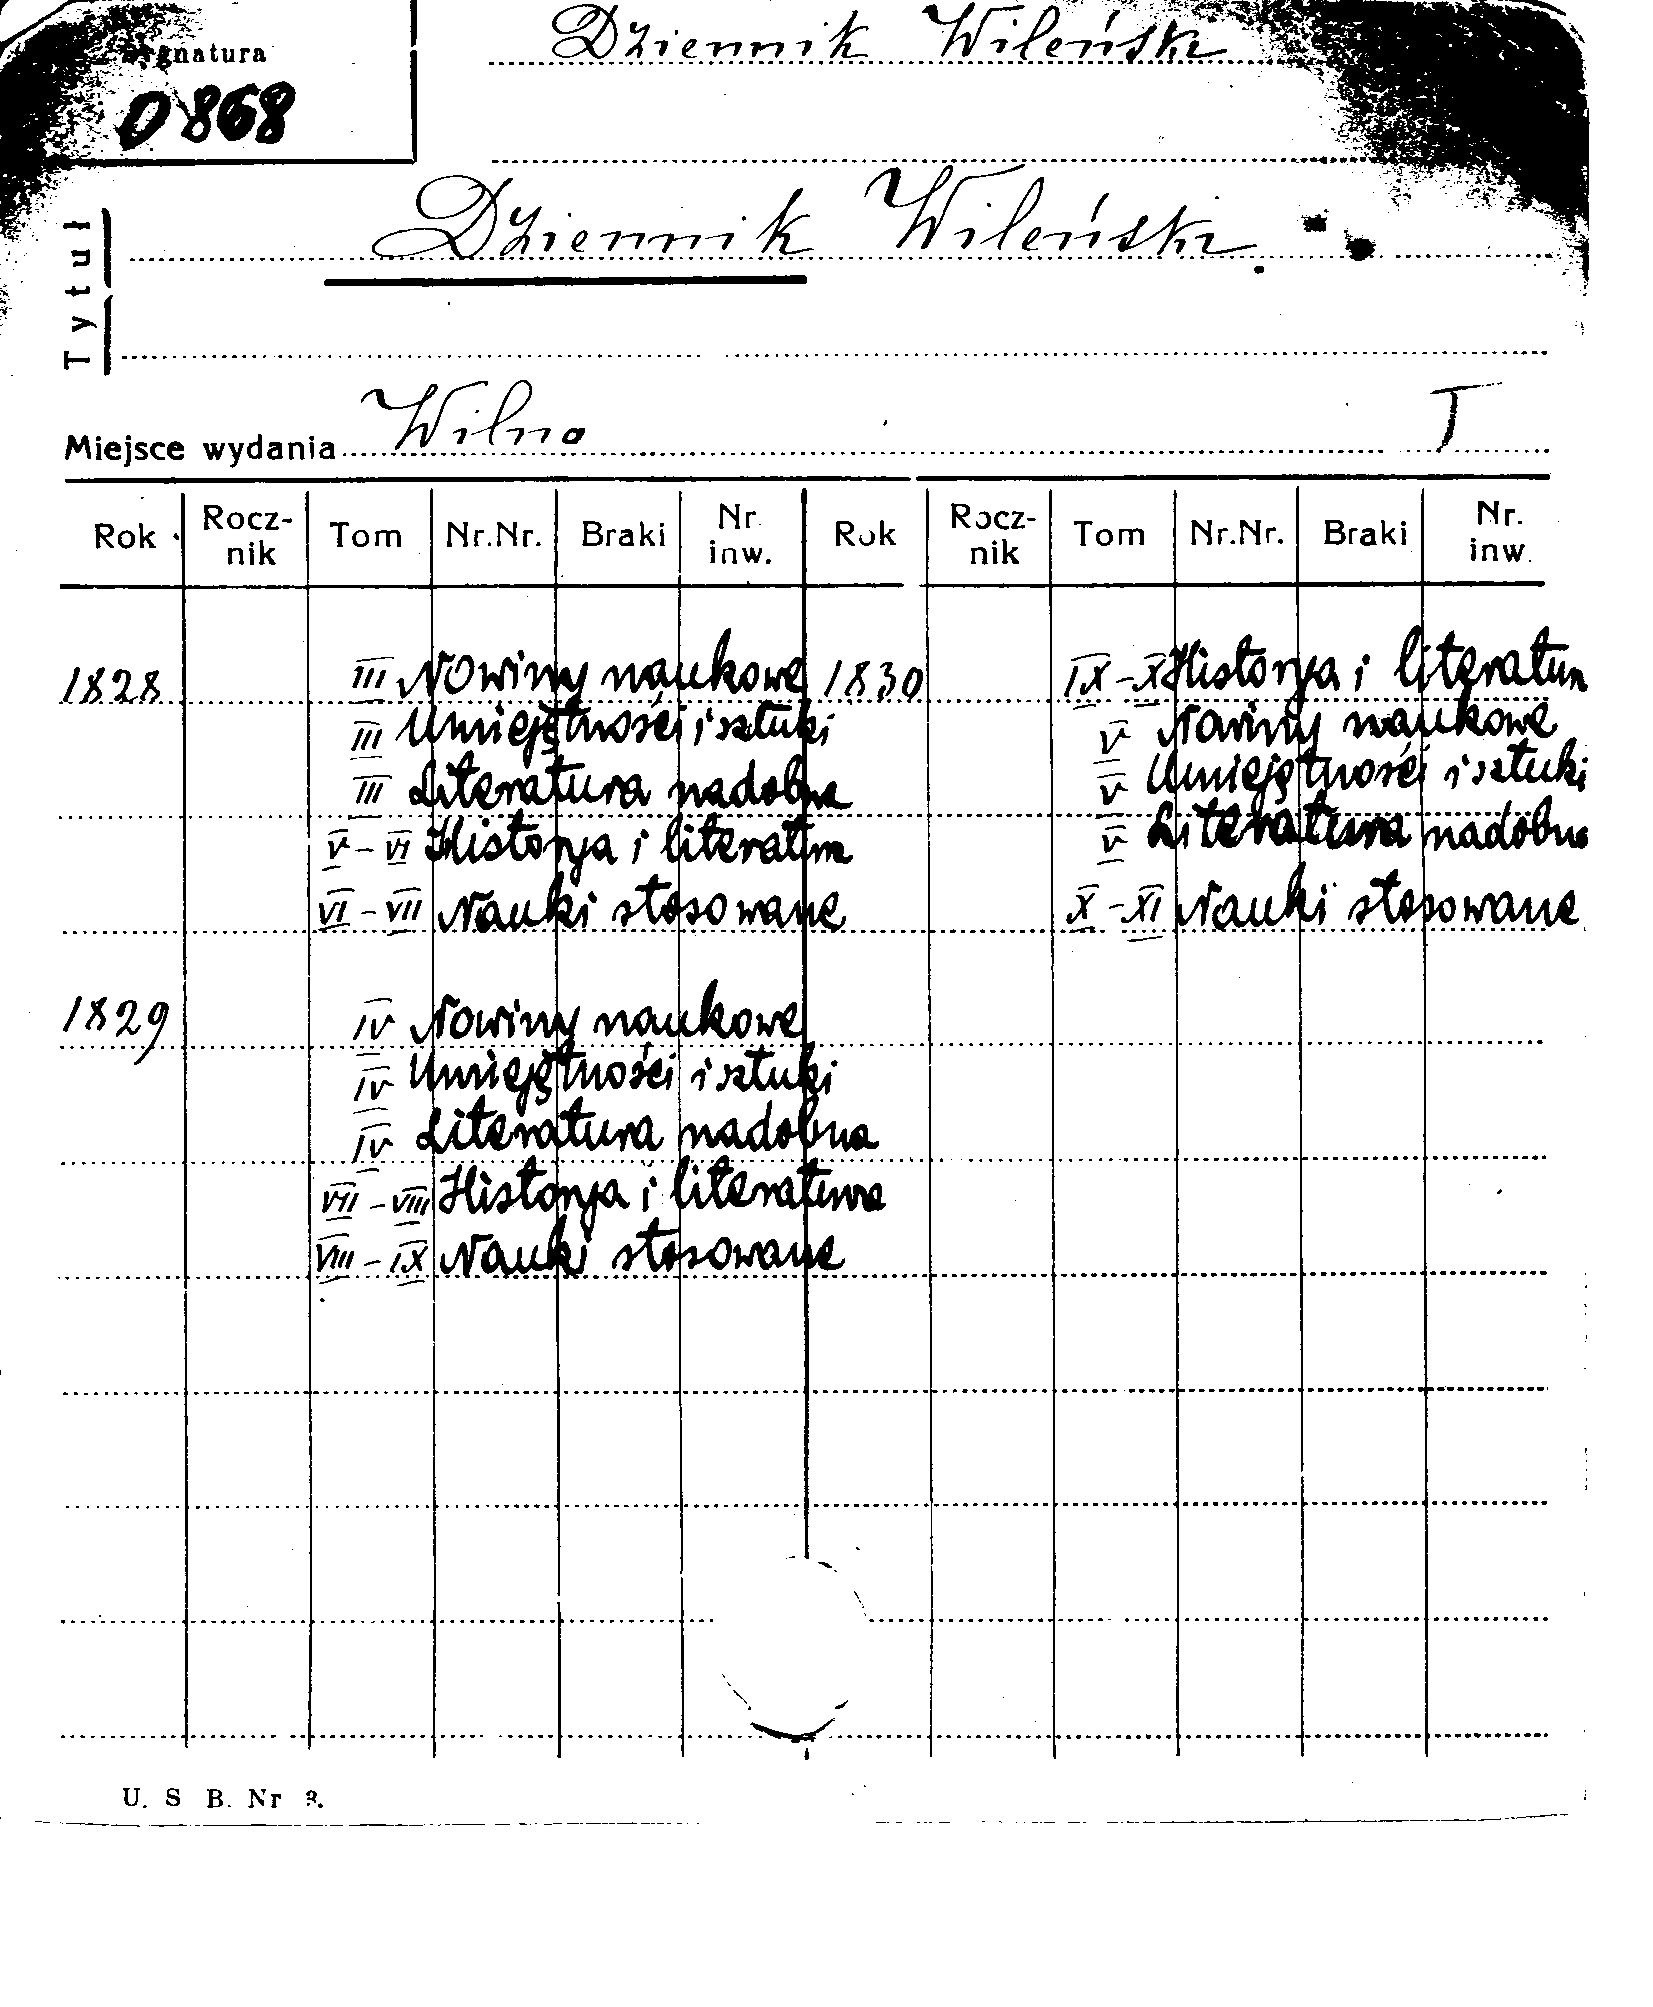 Sygnatura
Dziennik Wileński
0868
Tytuł
Dziennik Wileński.
Miejsce wydania Wilno I
Rok Rocz-nik Tom Nr.Nr. Braki Nr. inw. Rok Rocz-nik Tom Nr.Nr. Braki Nr. inw.
1828 III Nowiny naukowe
III Umiejętności i sztuki
III Literatura nadobna
V-VI Historya i literatura
VI-VII Nauki stosowane
1829 IV Nowiny naukowe
IV Umiejętności i sztuki
IV Literatura nadobna
VII-VIII Historya i literatura
VIII-IX Nauki stosowane
1830 IX-X Historya i literatur
V Nowiny naukowe
V Umiejętności i sztuki
V Literatura nadobna
X-XI Nauki stosowane
U. S. B. Nr 3.